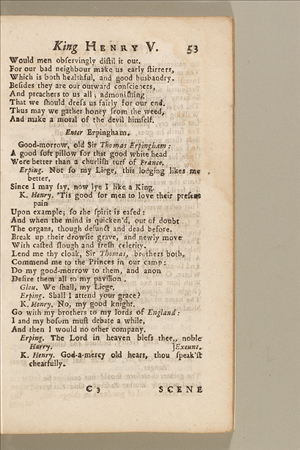 King HENRY V. 53
Would men observingly distil it out.
For our bad neighbour make us early stirrers,
Which is both healthful, and good husbandry.
Besides they are our outward consciences,
And preachers to us all; admonishing
That we should dress us fairly for our end.
Thus may we gather honey from the weed,
And make a moral of the devil himself.
Enter Erpingham.
Good-morrow, old Sir Thomas Erpingham:
A good soft pillow for that good white head
Were better than a churlish turf of France.
Erping. Not so my Liege, this lodging likes me
better,
Since I may say, now lye I like a King.
K. Henry. 'Tis good for men to love their present
pain
Upon example; so the spirit is eased:
And when the mind is quicken'd, out of doubt
The organs, though defunct and dead before,
Break up their drowsie grave, and newly move
With casted slough and fresh celerity.
Lend me thy cloak, Sir Thomas, brothers both,
Commend me to the Princes in our camp;
Do my good-morrow to them, and anon
Desire them all to my pavilion.
Glou. We shall, my Liege.
Erping. Shall I attend your grace?
K. Henry. No, my good knight.
Go with my brothers to my lords of England:
I and my bosom must debate a while,
And then I would no other company.
Erping. The Lord in heaven bless thee, noble
Harry. [Exeunt.
K. Henry. God-a-mercy old heart, thou speak'st
chearfully.
C 3 SCENE